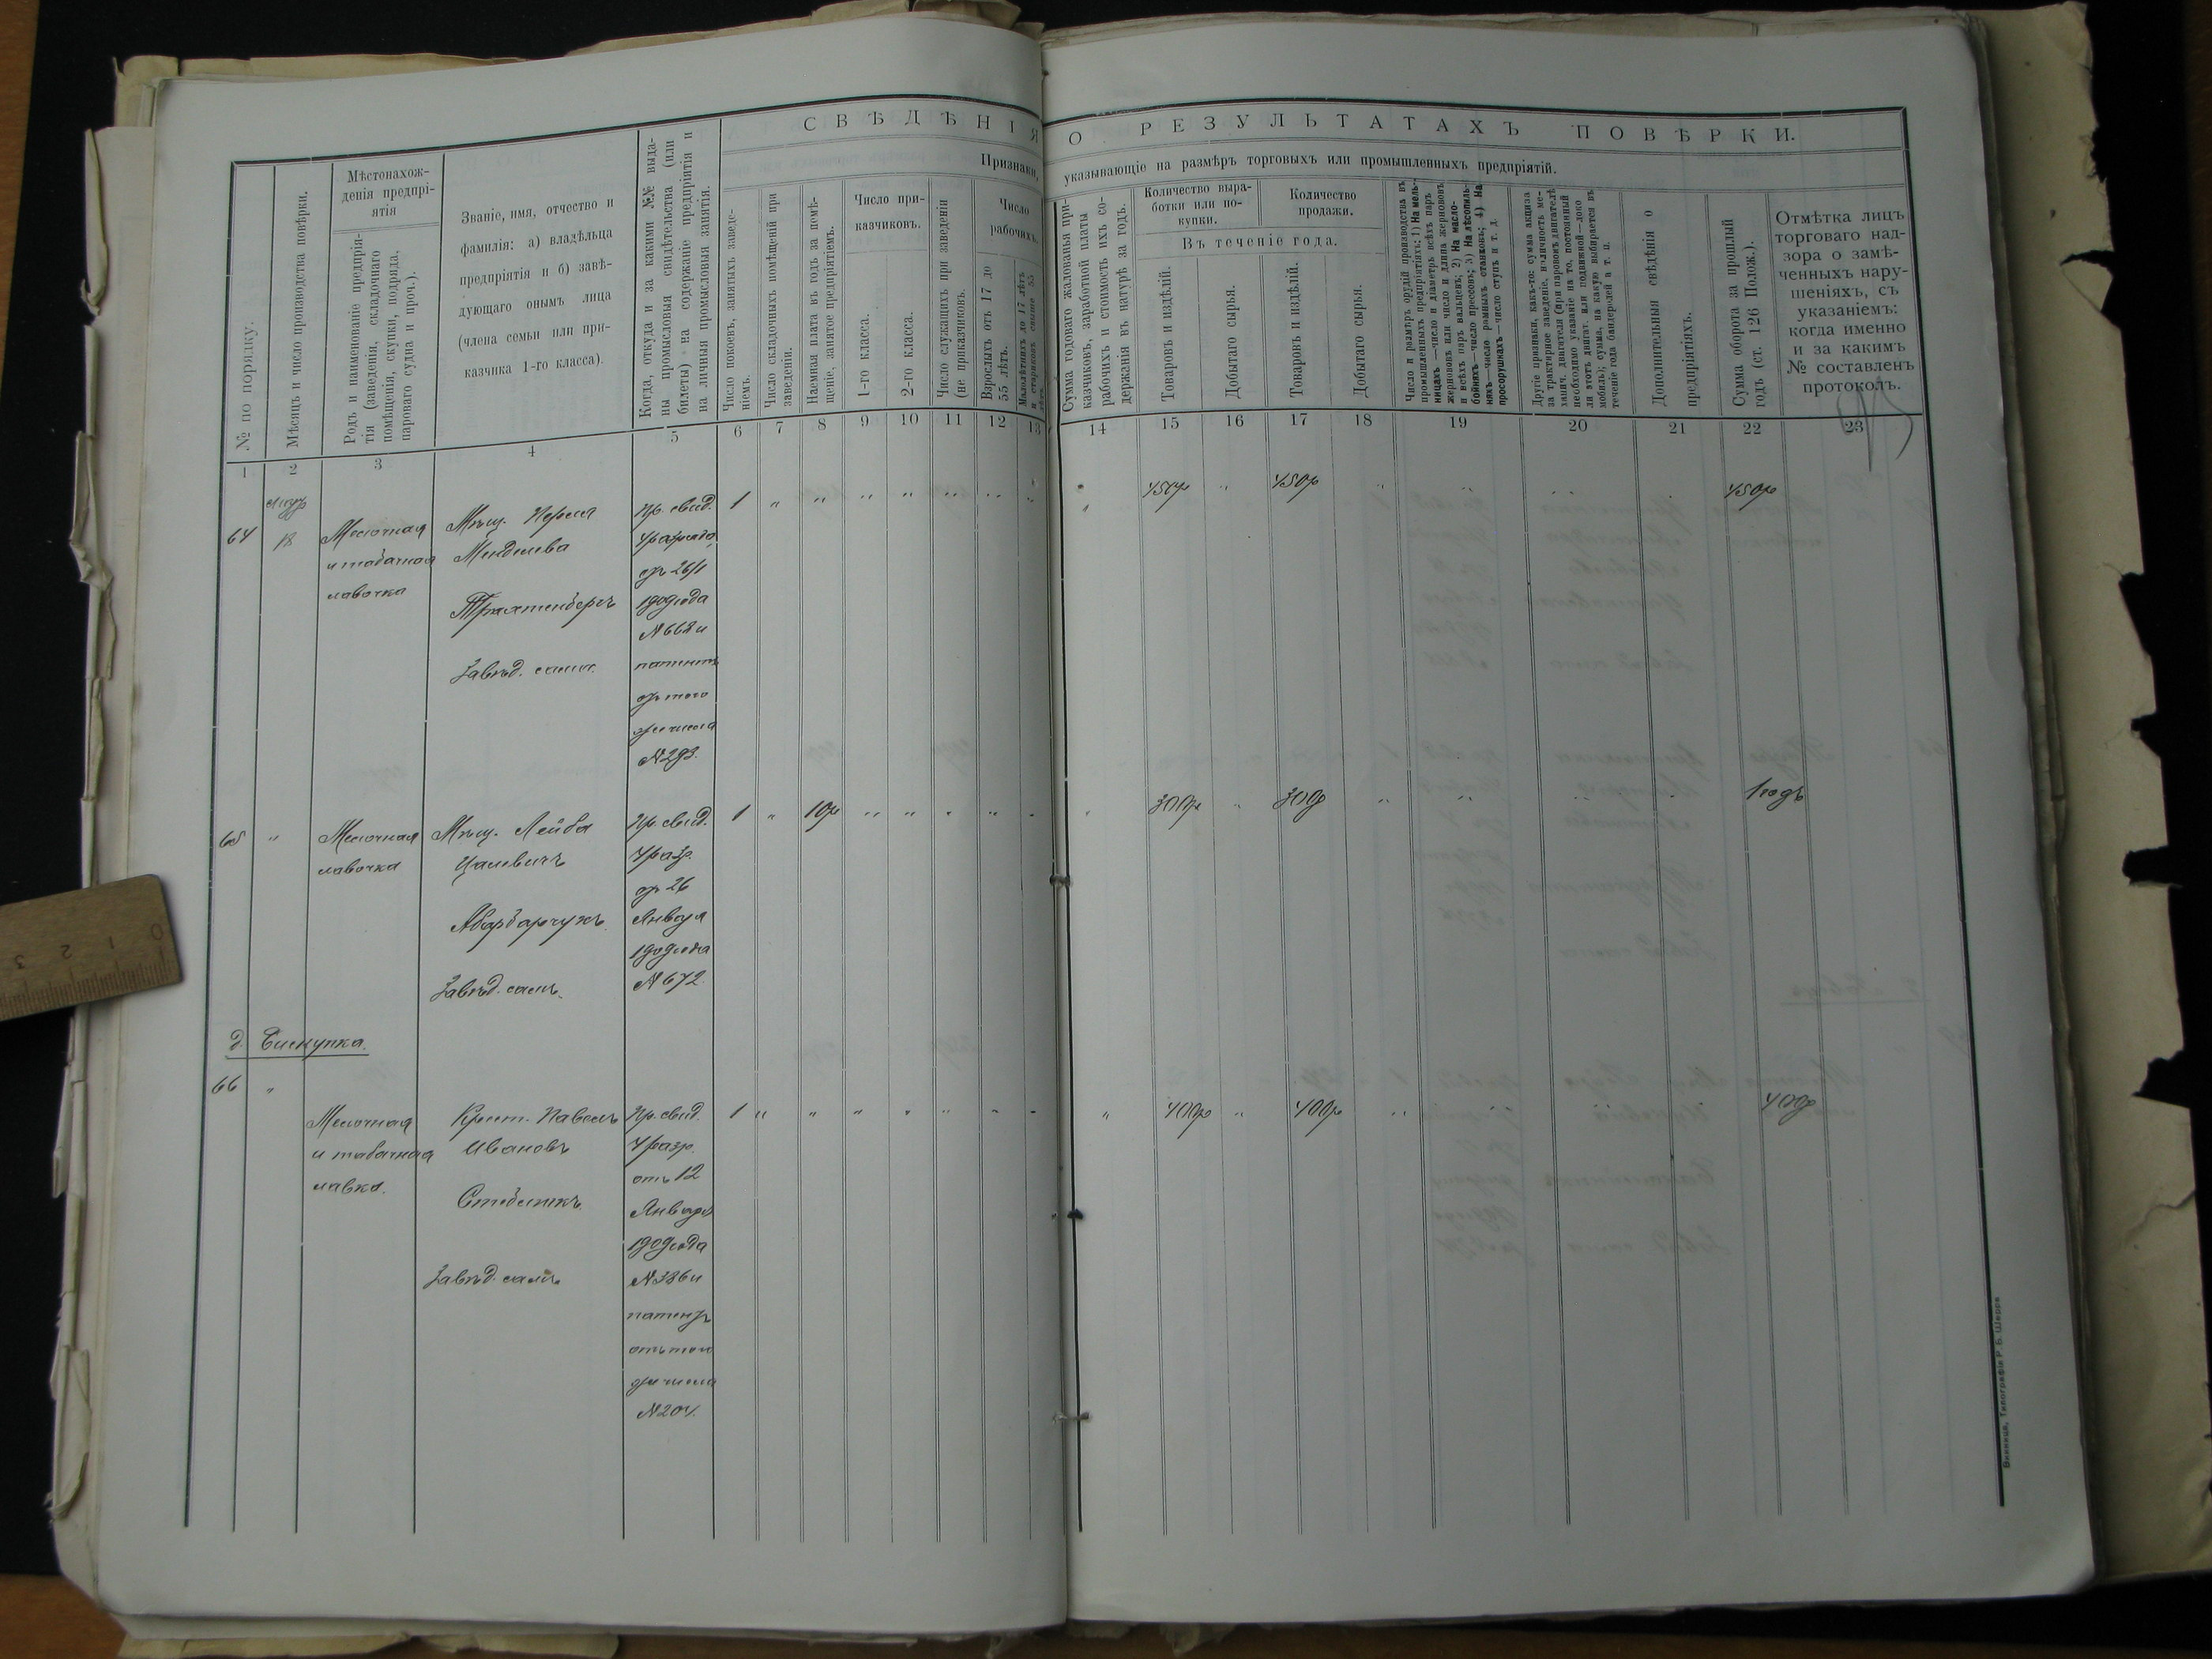 СВѢДѢНІЯ О РЕЗУЛЬТАТАХЪ ПОВѢРКИ.
Признаки, указывающіе на размѣръ торговыхъ или промышленныхъ предпріятій.
№ по порядку.
Мѣсяцъ и число производства повѣрки.
Мѣстонахож-
денія предпрі-
ятія
Родъ и наименованіе предпрія-
тія (заведенія, складочнаго
помѣщенія, скупки, подряда,
пароваго судна и проч.).
Званіе, имя, отчество и
фамилія: а) владѣльца
предпріятія и б) завѣ-
дующаго онымъ лица
(члена семьи или при-
казчика 1-го класса).
Когда, откуда и за какими №№ выда-
ны промысловыя свидѣтельства (или
билеты) на содержаніе предпріятія и
на личныя промысловыя занятія.
Число покоевъ, занятыхъ заведе-
ніемъ.
Число складочныхъ помѣщеній при
заведеніи.
Наемная плата въ годъ за помѣ-
щеніе, занятое предпріятіемъ.
Число при-
казчиковъ.
1-го класса.
2-го класса.
Число служащихъ при заведеніи
(не приказчиковъ).
Число
рабочихъ.
Взрослыхъ отъ 17 до
55 лѣтъ.
Малолѣтнихъ до 17 лѣтъ
и стариковъ свыше 55
лѣтъ.
Сумма годоваго жалованья при-
казчиковъ, заработной платы
рабочихъ и стоимость ихъ со-
держанія въ натурѣ за годъ.
Количество выра-
ботки или по-
купки.
Количество
продажи.
Въ теченіе года.
Товаровъ и издѣлій.
Добытаго сырья.
Товаровъ и издѣлій.
Добытаго сырья.
Число и размѣръ орудій производства въ
промышленныхъ предпріятіяхъ: 1) На мель-
ницахъ—число и діаметръ всѣхъ паръ
жернововъ или число и длина жернововъ
и всѣхъ паръ вальцевъ; 2) На масло-
бойняхъ—число прессовъ; 3) На лѣсопиль-
няхъ—число рамныхъ станковъ; 4) На
просорушкахъ—число ступъ и т. д.
Другіе признаки, какъ-то: сумма акциза
за трактирное заведеніе, наличность ме-
ханич. двигателя (при паровомъ двигателѣ
необходимо указаніе на то, постоянный
ли этотъ двигат. или подвижной—локо
мобиль); сумма, на какую выбирается въ
теченіе года бандеролей и т. п.
Дополнительныя свѣдѣнія о
предпріятіяхъ.
Сумма оборота за прошлый
годъ (ст. 126 Полож.).
Отмѣтка лицъ
торговаго над-
зора о замѣ-
ченныхъ нару-
шеніяхъ, съ
указаніемъ:
когда именно
и за какимъ
№ составленъ
протоколъ.
1 2 3 4 5 6 7 8 9 10 11 12 13 14 15 16 17 18 19 20 21 22 23
64
18
Мелочная
и табачная
лавочка
Мѣщ. Перля
Менделева
Трахтенбергъ
Завѣд. сама.
Пр. свид.
4 разряда
отъ 26/I
1909 года
№ 668 и
патентъ
отъ того
же числа
№ 293.
1 " " " " " " "
450р " 450р " " " 450р
65 "
Мелочная
лавочка
Мѣщ. Лейба
Цалевичъ
Абарбарчукъ.
Завѣд. самъ.
Пр. свид.
4 разр.
отъ 26
Января
1909 года
№ 672.
1 " 10р " " " " "
300р " 300р " " " 1 годъ
66 "
Мелочная
и табачная
лавка.
Крест. Павелъ
Ивановъ
Завѣд. самъ
Пр. свид.
4 разр.
отъ 12
Января
1909 года
№ 386 и
патентъ
отъ того
же числа
№ 204.
1 " " " " " " "
" 400р " 400р " " " 400р
Винница, Типографія Р. Б. Шерра